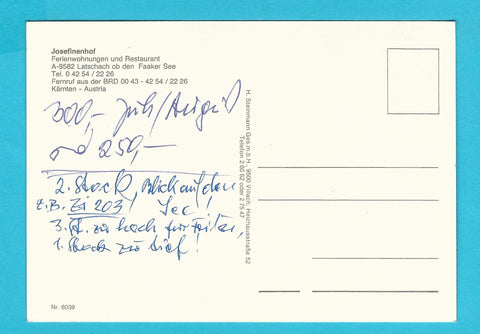 Josefinenhof
Ferienwohnungen und Restaurant
A-9582 Latschach ob den Faaker See
Tel. 0 42 54 / 22 26
Fernruf aus der BRD 00 43 - 42 54 / 22 26
Kärnten - Austria
300,- Juli/August
250,-
2. Stock, Blick auf den
z.B. Zi 203, See!
3. St. zu hoch für
1. Stock zu tief!
Nr. 6039
H. Steinmann Ges.m.b.H., 9500 Villach, Heidenausstraße 52
Telefon 2 60 62 oder 2 75 47